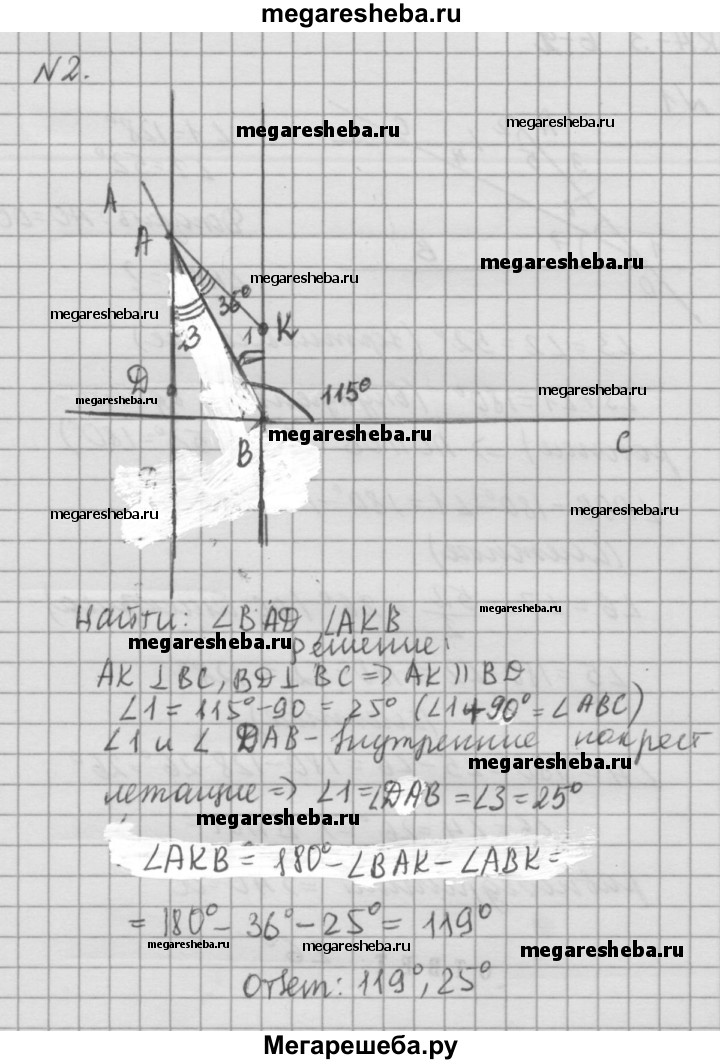 megaresheba.ru
N2.
megaresheba.ru
megaresheba.ru
A
A
megaresheba.ru
megaresheba.ru
36°
megaresheba.ru
3
1
K
Д
megaresheba.ru
115°
megaresheba.ru
megaresheba.ru
B
C
megaresheba.ru
megaresheba.ru
Найти: ∠BAD ∠AKB
megaresheba.ru
megaresheba.ru
решение:
AK ⊥ BC, BD ⊥ BC => AK || BD
∠1 = 115° - 90 = 25° (∠1 + 90° = ∠ABC)
∠1 и ∠ DAB - внутренние накрест
megaresheba.ru
лежащие => ∠1 = ∠DAB = ∠3 = 25°
megaresheba.ru
∠AKB = 180° - ∠BAK - ∠ABK =
= 180° - 36° - 25° = 119°
megaresheba.ru
megaresheba.ru
megaresheba.ru
Ответ: 119°, 25°
Мегарешеба.ру